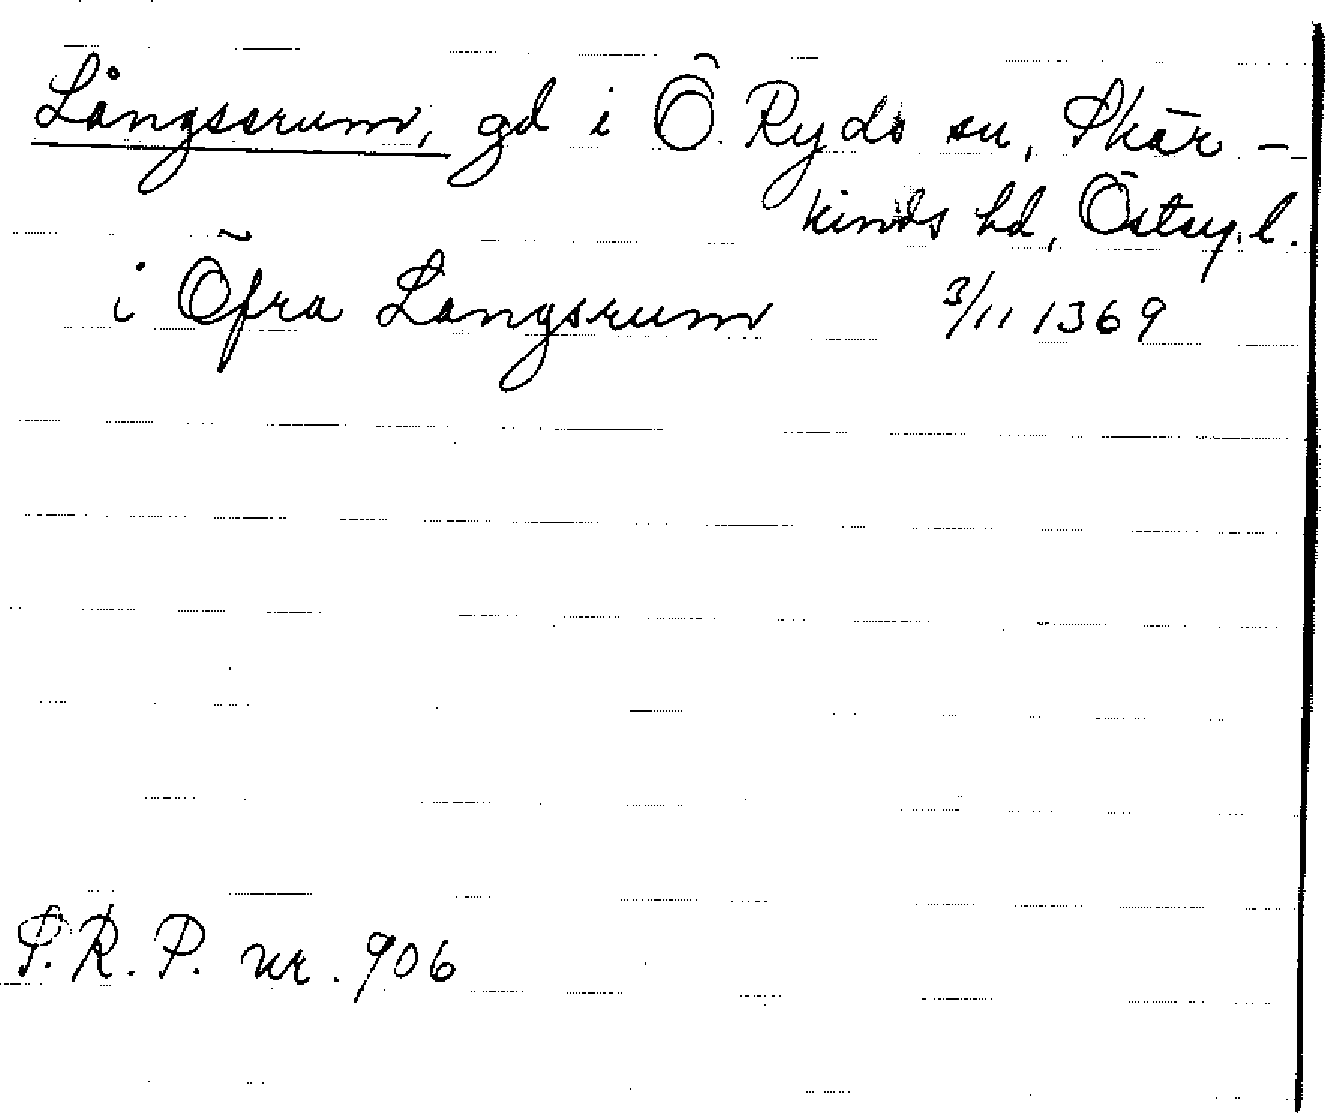 Långserum, gd i Ö Ryds sn, Skär-
kinds hd, Östsg. l.
i Öfra Langsrum 3/11 1369
S.R.P. nr. 906